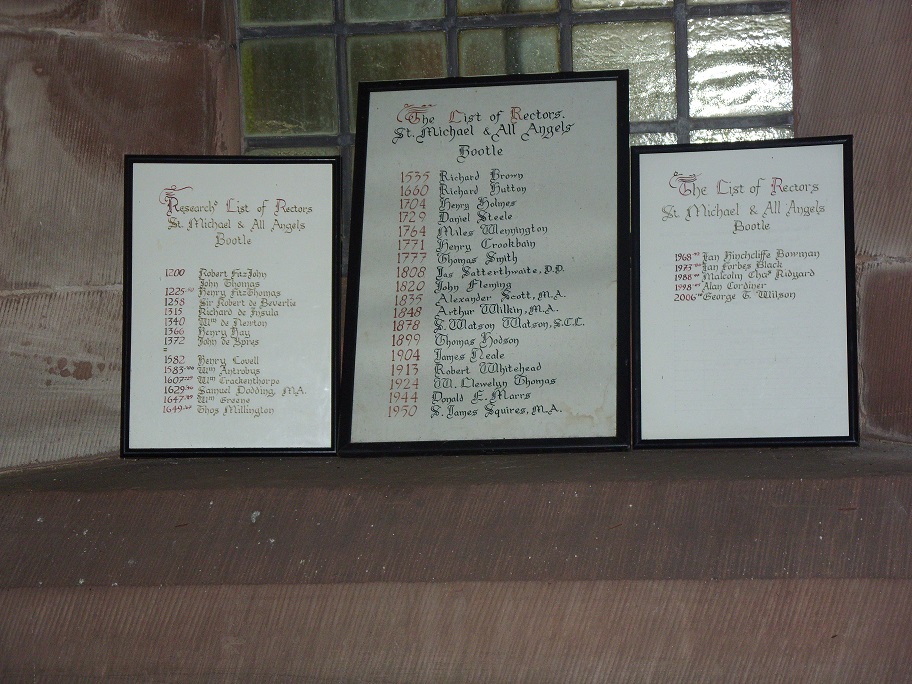 Research List of Rectors
St. Michael & All Angels
Bootle
1200 Robert FazJohn
John Thomas
1225 Henry FitzThomas
1258 Sir Robert de Beverlie
1315 Richard de Insula
1340 Wm de Newton
1366 Henry Hay
1372 John de Apires
1582 Henry Lovell
1583 Wm Antrobus
1607 Wm Crackenthorpe
1629 Samuel Dodding, M.A.
1647 Wm Greene
1649 Thos Millington
The List of Rectors.
St. Michael & All Angels
Bootle
1535 Richard Brown
1660 Richard Hutton
1704 Henry Holmes
1729 Daniel Steele
1764 Miles Wennington
1771 Henry Crookbain
1777 Thomas Smith
1808 Jas Satterthwaite, D.D.
1820 John Fleming
1835 Alexander Scott, M.A.
1848 Arthur Wilkin, M.A.
1878 S. Watson Watson, S.C.L.
1899 Thomas Hodson
1904 James Neale
1913 Robert Whitehead
1924 W. Llewelyn Thomas
1944 Donald E. Marrs
1950 S. James Squires, M.A.
The List of Rectors
St Michael & All Angels
Bootle
1968 Ian Hinchcliffe Bowman
1973 Ian Forbes Black
1988 Malcolm Chas Ridyard
1998 Alan Cordiner
2006 George T. Wilson